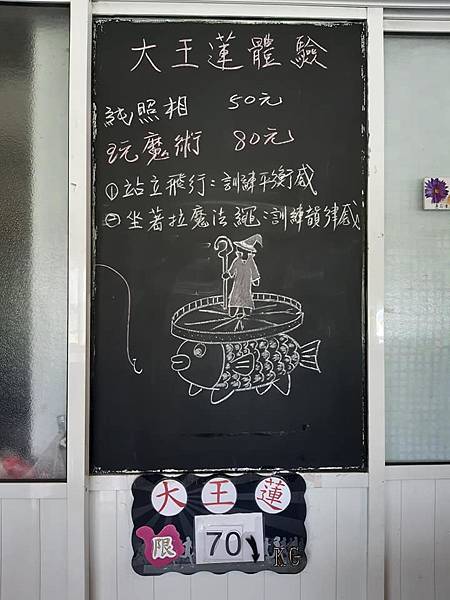 大王蓮體驗
純照相 50元
玩魔術 80元
①站立飛行：訓練平衡感
②坐著拉魔法繩：訓練韻律感
大王蓮
限 70 KG